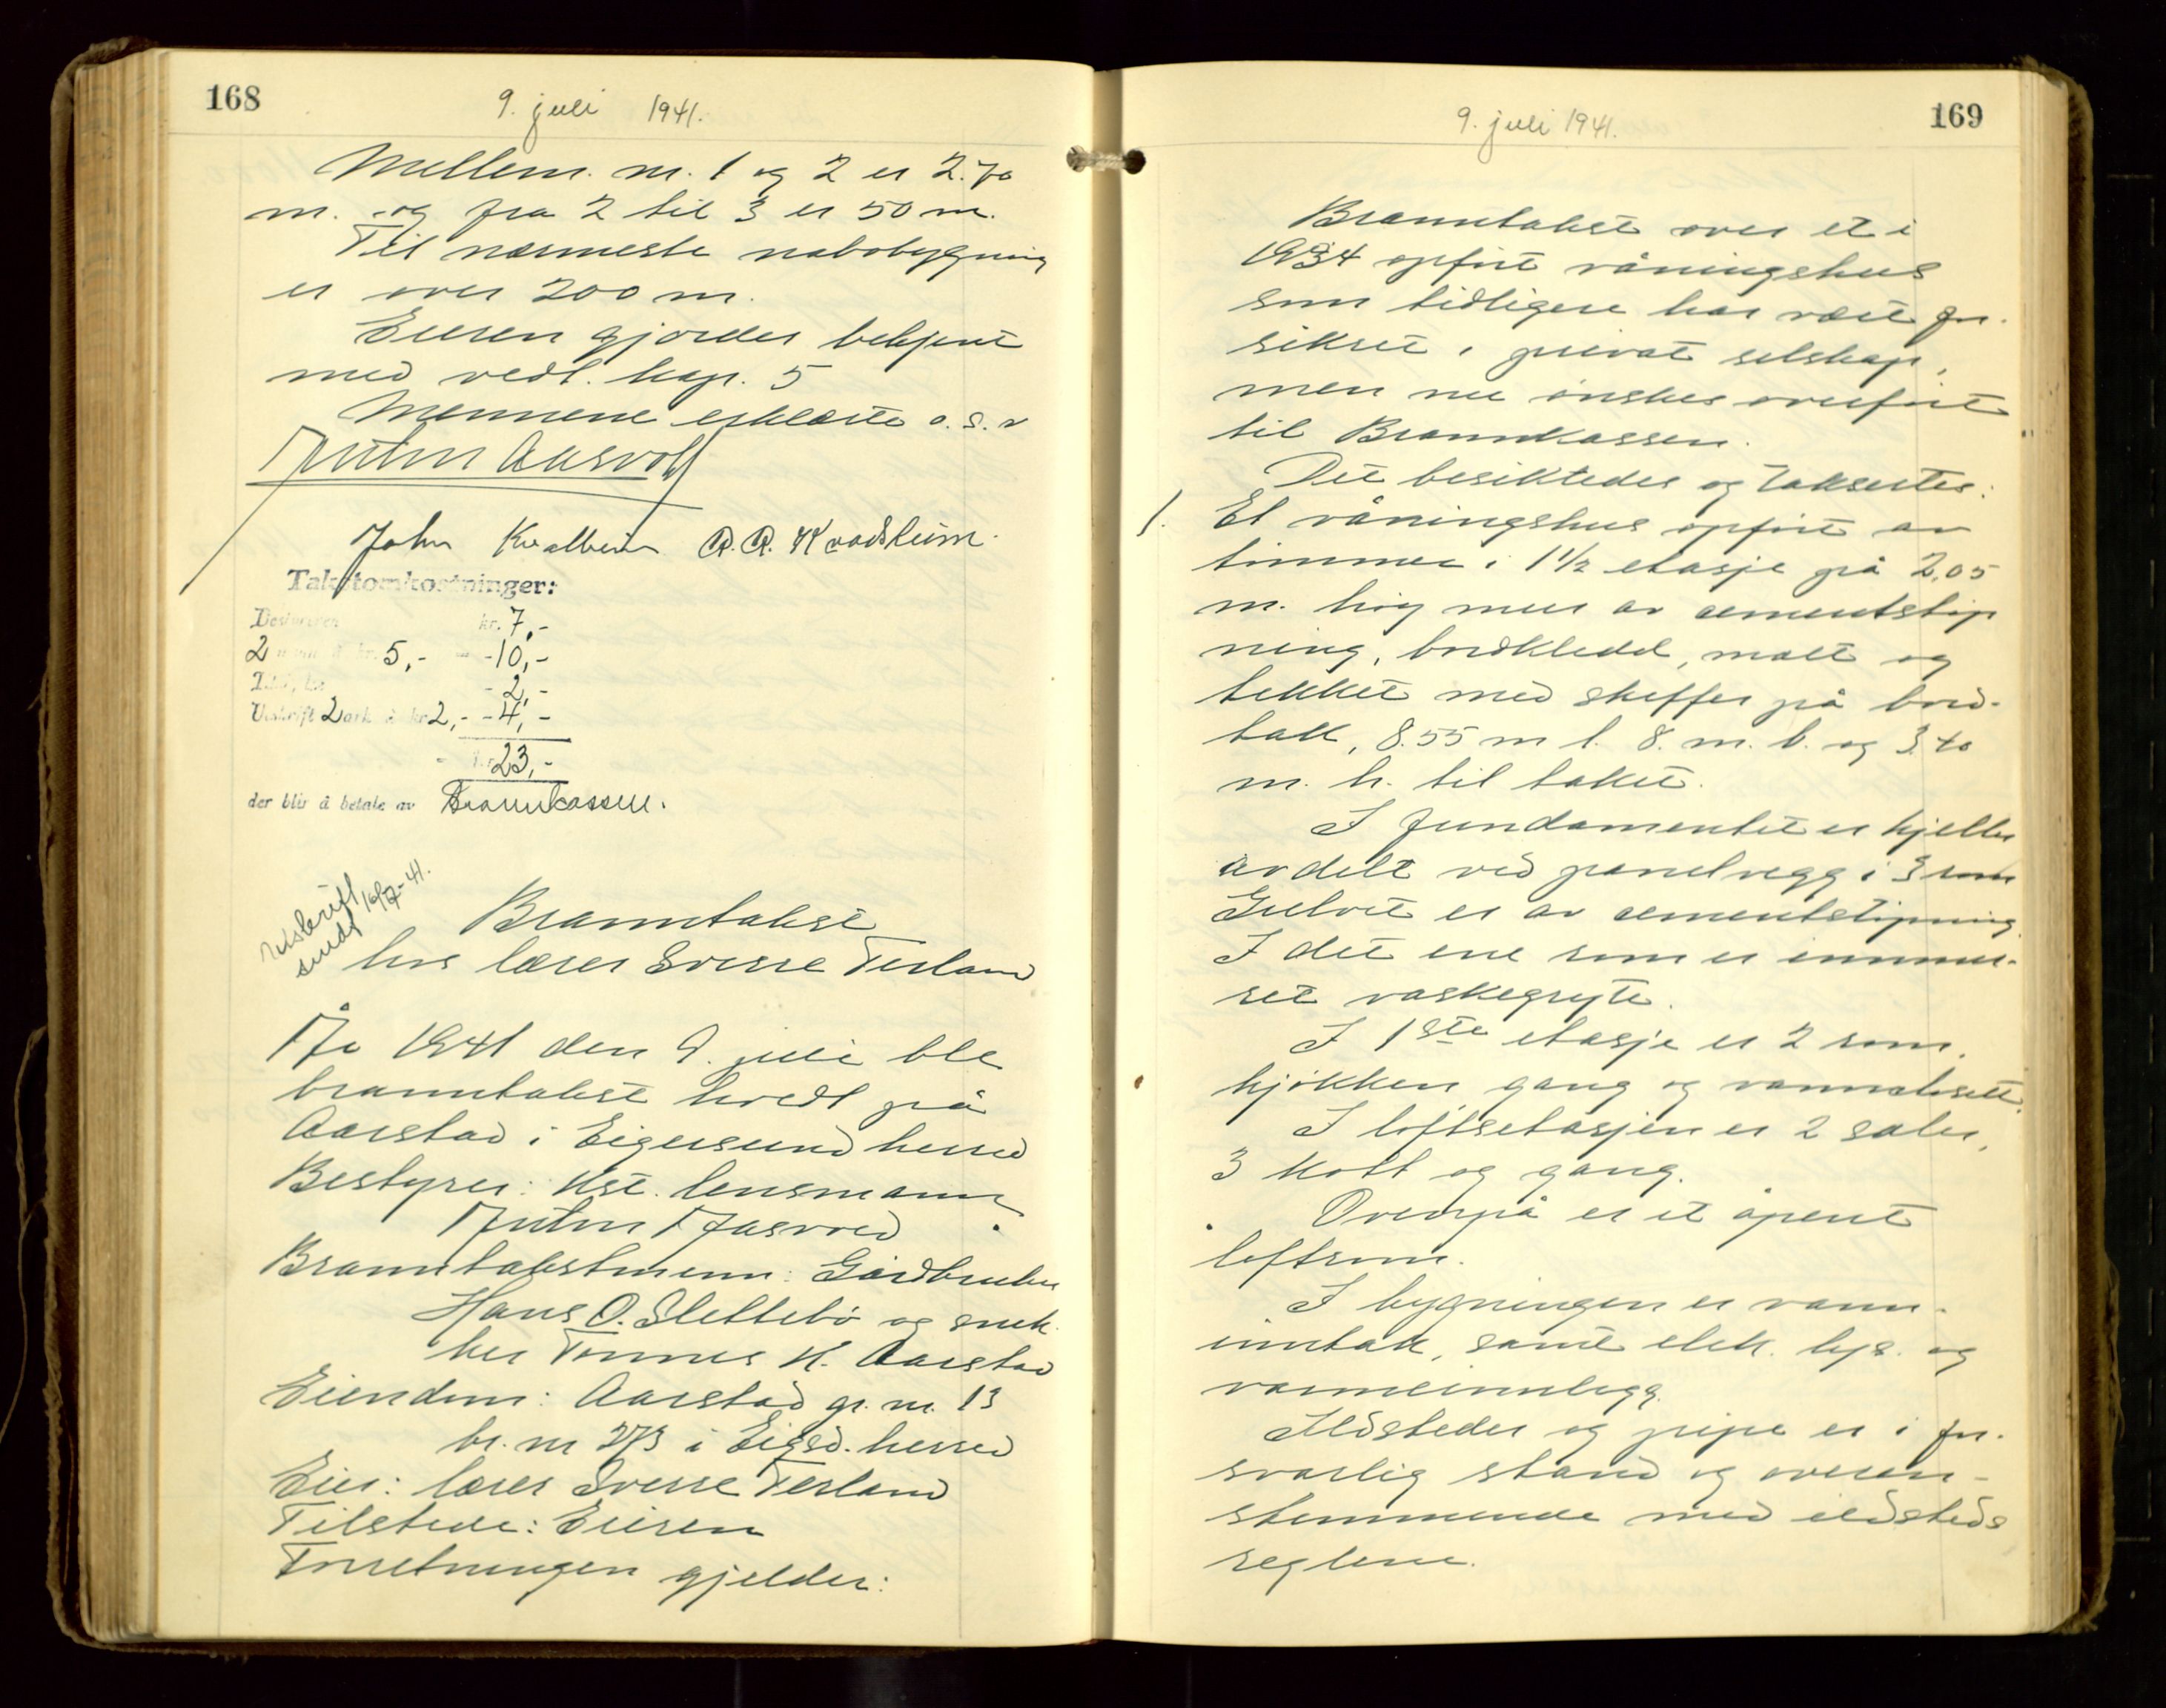 168
9. juli 1941.
Mellem. nr. 1 og 2 er 2.70
m. og fra 2 til 3 er 50 m.
Til nærmeste nabobygning
er over 200 m.
Eieren gjordes bekjent
med vedt. kap. 5
Mennene erklærte o.s.v
John Kvalheim
Takstomkostninger:
Bestyreren kr. 7,-
2 menn à kr. 5,- - -10,-
- 2,-
Utskrift 2 ark à kr 2,- - 4,-
kr 23,-
der blir å betale av Brannkassen.
Utskrift
sendt 16/7-41.
Branntakst
hos lærer Sverre Terland
År 1941 den 9. juli ble
branntakst holdt på
Aarstad i Eigersund herred
Bestyrer: Kst. lensmann
Branntakstmenn: Gårdbruker
Hans O. Slettebø og snek-
ker Tønnes K. Aarstad
Eiendom: Aarstad gr. nr. 13
br. nr 273 i Eigsd. herred
Eier: lærer Sverre Terland
Tilstede: Eieren
Forretningen gjelder:
169
9. juli 1941.
Branntakst over et i
1934 opført våningshus
som tidligere har vært for-
sikret i privat selskap,
men nu ønskes overført
til Brannkassen.
Det besiktedes og taksertes:
1. Et våningshus opført av
tømmer i 1 1/2 etasje på 2,05
m. høg mur av cementstøp
ning, bordkledd, malt og
tekket med skiffer på bord-
tak, 8.55 m l. 8. m. b. og 3.40
m. h. til taket.
I fundamentet er kjeller
avdelt ved panelvegg i 3 rom
Gulvet er av cementstøpning.
I det ene rom er innmu-
ret vaskegryte.
I 1ste etasje er 2 rom,
kjøkken gang og vannklosett.
I loftsetasjen er 2 saler,
3 kott og gang.
Ovenpå er et åpent
loftsrom.
I bygningen er vann-
inntak, samt elek. lys. og
varmeinnlegg.
Ildsteder og pipe er i for-
svarlig stand og overen-
stemmende med ildsteds
reglene.